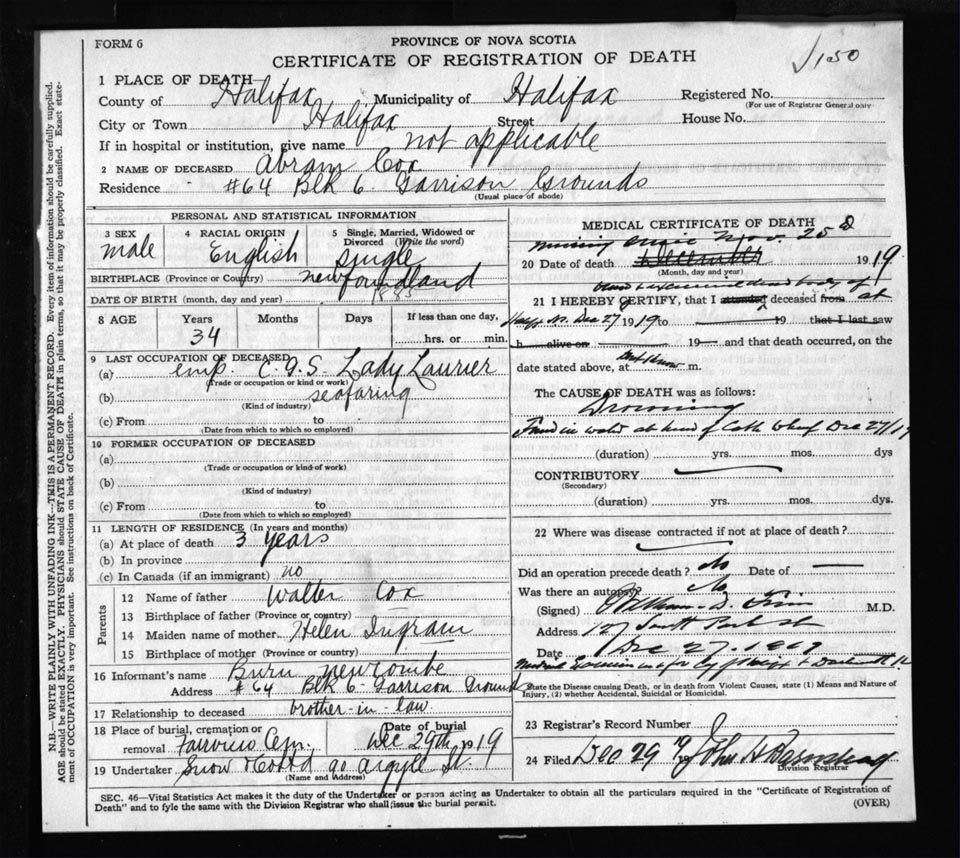 FORM 6
PROVINCE OF NOVA SCOTIA
CERTIFICATE OF REGISTRATION OF DEATH
√1.50
1 PLACE OF DEATH
County of Halifax Municipality of Halifax Registered No.
(For use of Registrar General only
City or Town Halifax Street House No.
If in hospital or institution, give name not applicable
2 NAME OF DECEASED Abram Cox
Residence #64 Blk 6 Garrison Grounds
(Usual place of abode)
PERSONAL AND STATISTICAL INFORMATION
3 SEX 4 RACIAL ORIGIN 5 Single, Married, Widowed or Divorced (Write the word)
male English single
BIRTHPLACE (Province or Country) newfoundland
DATE OF BIRTH (month, day and year) 1885
8 AGE Years Months Days If less than one day,
34 hrs. or min.
9 LAST OCCUPATION OF DECEASED
(a) emp. C.G.S. Lady Laurier
(Trade or occupation or kind or work)
(b) seafaring
(Kind of industry)
(c) From to
(Date from which to which so employed)
10 FORMER OCCUPATION OF DECEASED
(a)
(Trade or occupation or kind of work)
(b)
(Kind of industry)
(c) From to
(Date from which to which so employed)
11 LENGTH OF RESIDENCE (In years and months)
(a) At place of death 3 years
(b) In province
(c) In Canada (if an immigrant) no
Parents
12 Name of father Walter Cox
13 Birthplace of father (Province or country)
14 Maiden name of mother Helen Ingram
15 Birthplace of mother (Province or country)
16 Informant's name Burn newcombe
Address #64 Blk 6 Garrison Grounds
17 Relationship to deceased brother-in-law
18 Place of burial, cremation or removal Fairview Cem. Date of burial Dec 29th 1919
19 Undertaker Snow & Co Ltd 90 Argyle St.
(Name and Address)
MEDICAL CERTIFICATE OF DEATH
missing since Nov. 25
20 Date of death December 1919
(Month, day and year)
21 I HEREBY CERTIFY, that I attended deceased from at
Dec 27 1919 to 19 that I last saw
h alive on 19 and that death occurred, on the
date stated above, at m.
The CAUSE OF DEATH was as follows:
Drowning
Found in water at head of Wharf Dec 27/19
(duration) yrs. mos. dys
CONTRIBUTORY
(Secondary)
(duration) yrs. mos. dys.
22 Where was disease contracted if not at place of death?
Did an operation precede death? No Date of
Was there an autopsy? No
(Signed) M.D.
Address 127 South Park St
Date Dec 27. 1919
State the Disease causing Death, or in death from Violent Causes, state (1) Means and Nature of Injury, (2) whether Accidental, Suicidal or Homicidal.
23 Registrar's Record Number
24 Filed Dec 29 19 John H Barnstead
Division Registrar
SEC. 46—Vital Statistics Act makes it the duty of the Undertaker or person acting as Undertaker to obtain all the particulars required in the "Certificate of Registration of
Death" and to fyle the same with the Division Registrar who shall issue the burial permit.
(OVER)
N.B.—WRITE PLAINLY WITH UNFADING INK—THIS IS A PERMANENT RECORD. Every item of information should be carefully supplied.
AGE should be stated EXACTLY. PHYSICIANS should STATE CAUSE OF DEATH in plain terms, so that it may be properly classified. Exact state-
ment of OCCUPATION is very important. See instructions on back of Certificate.